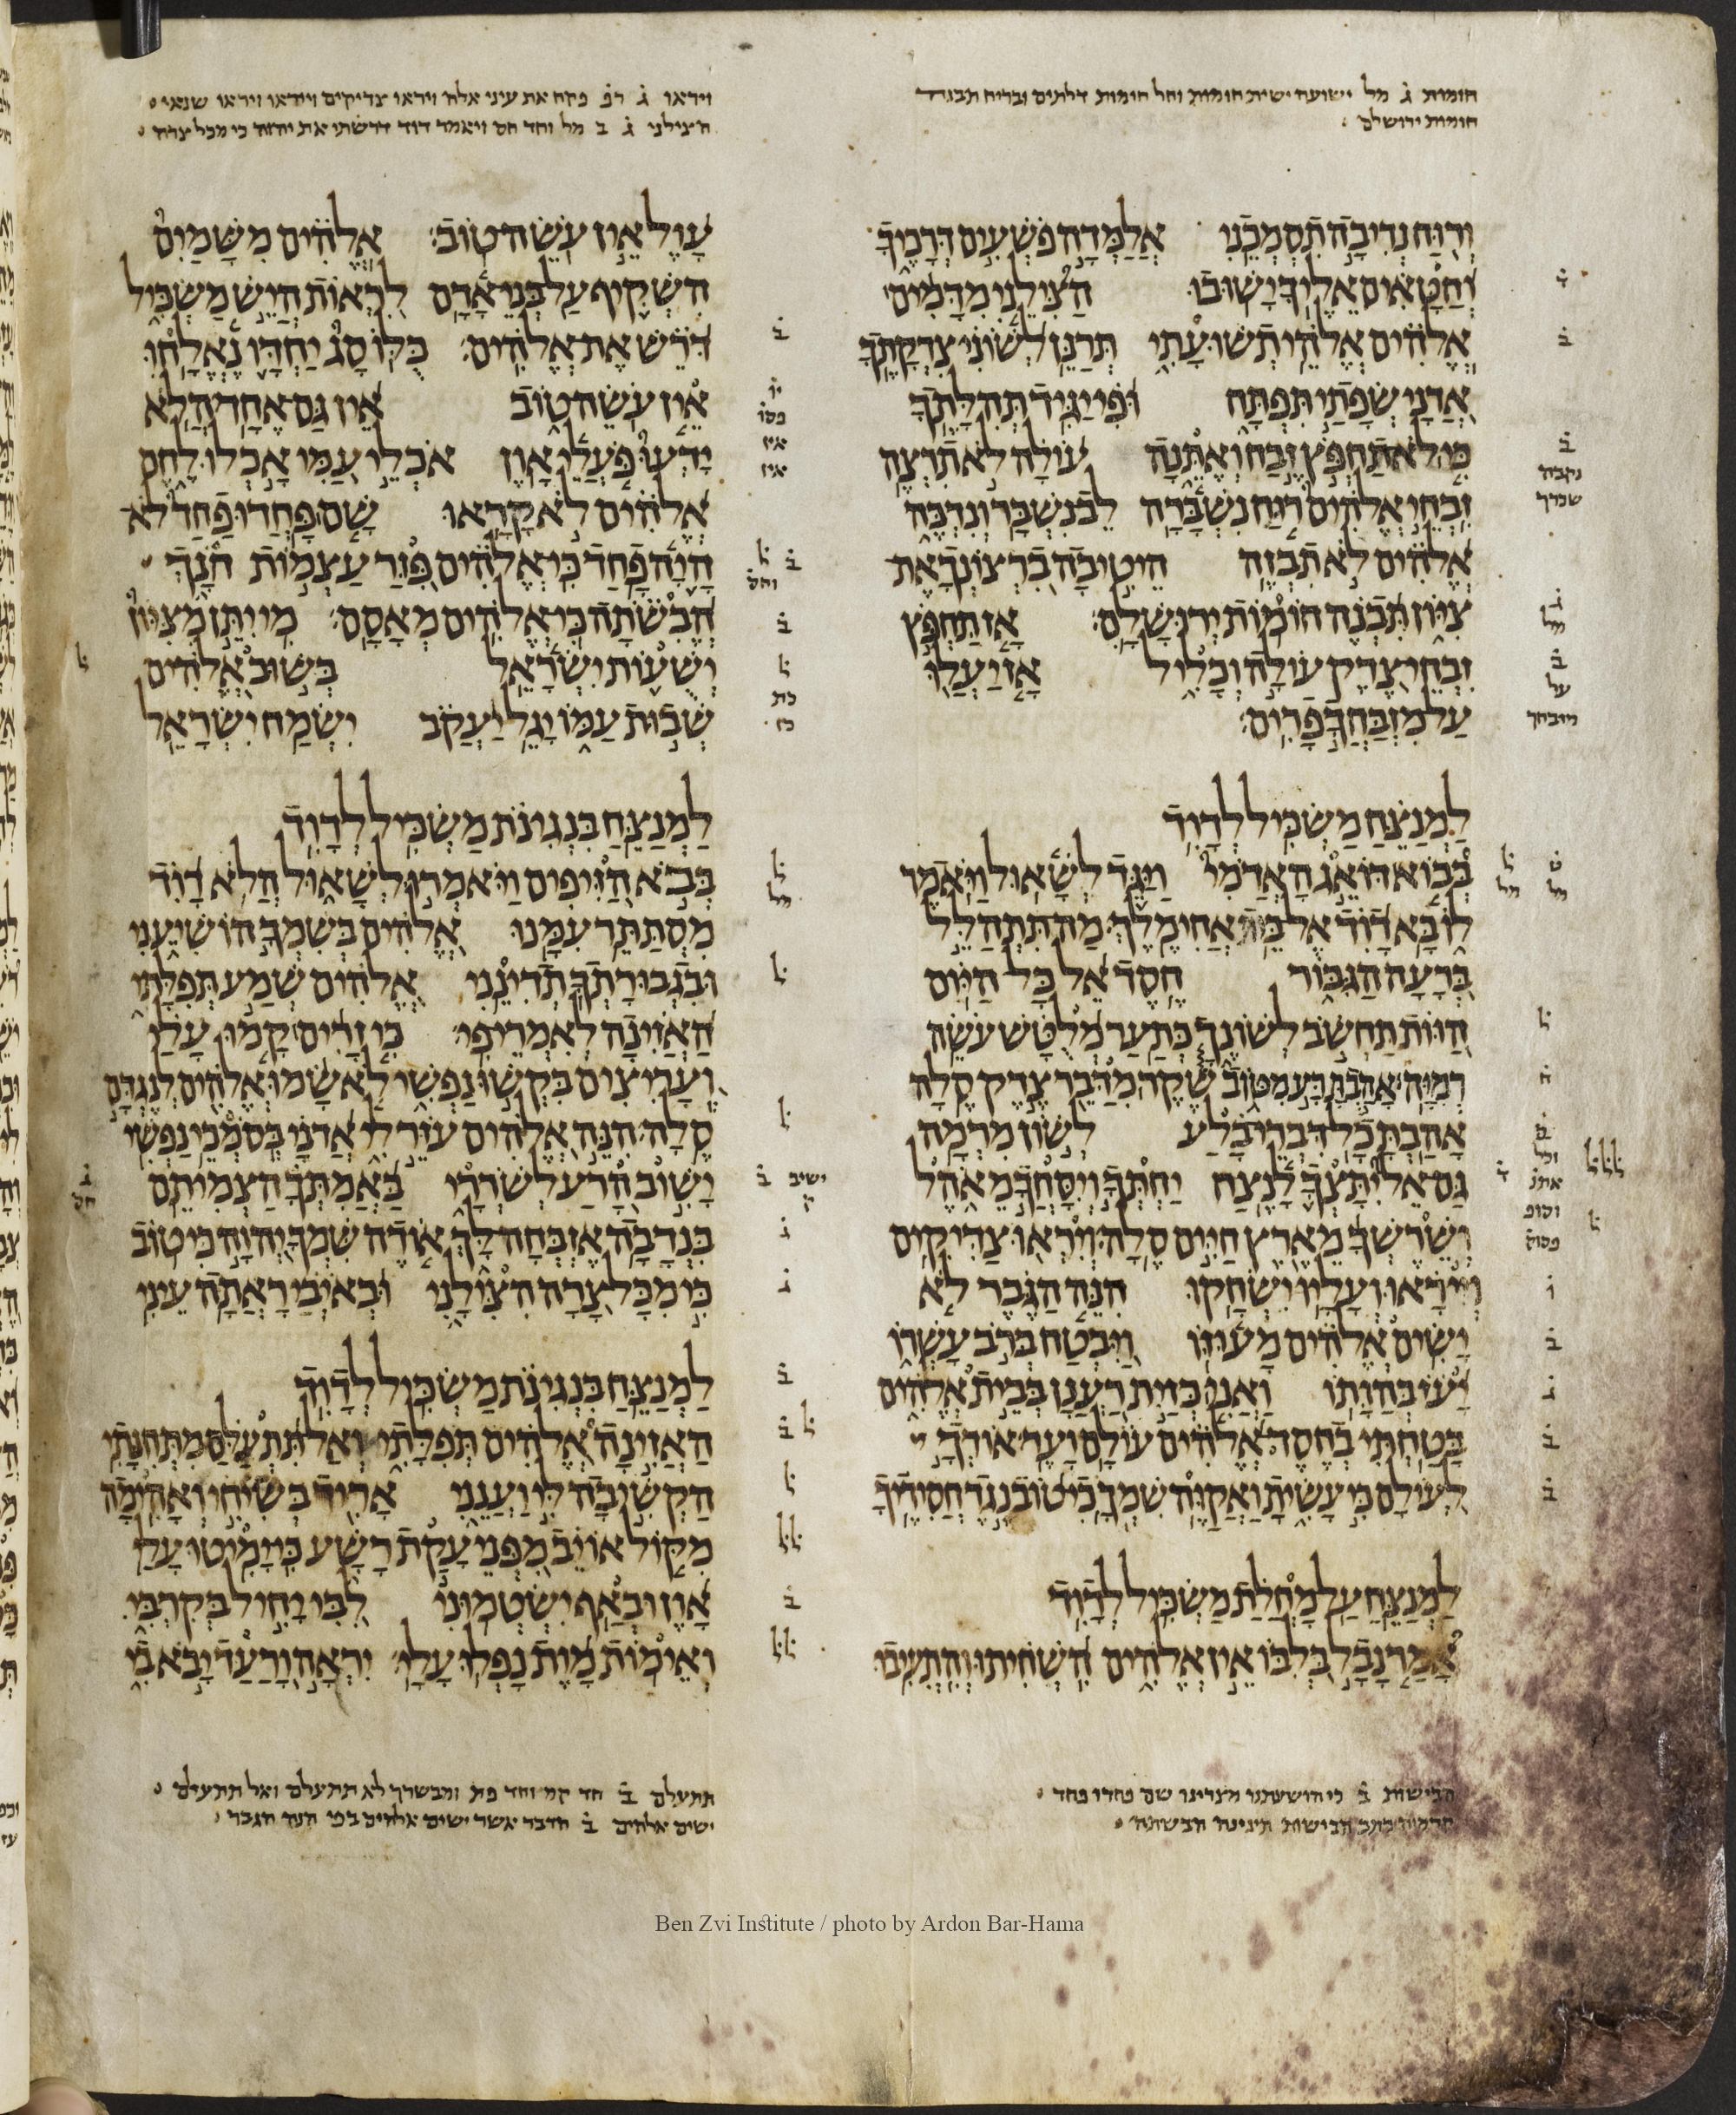 חומות ג מל ישועה ישית חומות וחל חומות דלתים ובריח תבנה
חומות ירושלם
וְר֖וּחַ נְדִיבָ֣ה תִסְמְכֵֽנִי׃ אֲלַמְּדָ֣ה פֹשְׁעִ֣ים דְּרָכֶ֑יךָ
וְ֝חַטָּאִ֗ים אֵלֶ֥יךָ יָשֽׁוּבוּ׃ הַצִּ֘ילֵ֤נִי מִדָּמִ֨ים ׀
אֱֽלֹהִ֗ים אֱלֹהֵ֥י תְשׁוּעָתִ֑י תְּרַנֵּ֥ן לְ֝שׁוֹנִ֗י צִדְקָתֶֽךָ׃
אֲ֭דֹנָי שְׂפָתַ֣י תִּפְתָּ֑ח וּ֝פִ֗י יַגִּ֥יד תְּהִלָּתֶֽךָ׃
כִּ֤י ׀ לֹא־תַחְפֹּ֣ץ זֶ֣בַח וְאֶתֵּ֑נָה ע֝וֹלָ֗ה לֹ֣א תִרְצֶֽה׃
זִֽבְחֵ֣י אֱלֹהִים֮ ר֤וּחַ נִשְׁבָּ֫רָ֥ה לֵב־נִשְׁבָּ֥ר וְנִדְכֶּ֑ה
אֱ֝לֹהִ֗ים לֹ֣א תִבְזֶֽה׃ הֵיטִ֣יבָה בִ֭רְצוֹנְךָ אֶת־
צִיּ֑וֹן תִּ֝בְנֶ֗ה חוֹמ֥וֹת יְרוּשָׁלִָֽם׃ אָ֤ז תַּחְפֹּ֣ץ
זִבְחֵי־צֶ֭דֶק עוֹלָ֣ה וְכָלִ֑יל אָ֤ז יַעֲל֖וּ
עַל־מִזְבַּחֲךָ֣ פָרִֽים׃
לַמְנַצֵּ֗חַ מַשְׂכִּ֥יל לְדָוִֽד׃
בְּב֤וֹא ׀ דּוֹאֵ֣ג הָאֲדֹמִי֮ וַיַּגֵּ֪ד לְשָׁ֫א֥וּל וַיֹּ֥אמֶר
ל֑וֹ בָּ֥א דָ֝וִ֗ד אֶל־בֵּ֥ית אֲחִימֶֽלֶךְ׃ מַה־תִּתְהַלֵּ֣ל
בְּ֭רָעָה הַגִּבּ֑וֹר חֶ֥סֶד אֵ֝֗ל כָּל־הַיּֽוֹם׃
הַ֭וּוֹת תַּחְשֹׁ֣ב לְשׁוֹנֶ֑ךָ כְּתַ֥עַר מְ֝לֻטָּ֗שׁ עֹשֵׂ֥ה
רְמִיָּֽה׃ אָהַ֣בְתָּ רָּ֣ע מִטּ֑וֹב שֶׁ֓קֶר ׀ מִדַּבֵּ֖ר צֶ֣דֶק סֶֽלָה׃
אָהַ֥בְתָּ כָֽל־דִּבְרֵי־בָ֗לַע לְשׁ֣וֹן מִרְמָֽה׃
גַּם־אֵל֮ יִתָּצְךָ֪ לָ֫נֶ֥צַח יַחְתְּךָ֣ וְיִסָּחֲךָ֣ מֵאֹ֑הֶל
וְשֵֽׁרֶשְׁךָ֨ מֵאֶ֖רֶץ חַיִּ֣ים סֶֽלָה׃ וְיִרְא֖וּ צַדִּיקִ֥ים
וְיִירָ֗אוּ וְעָלָ֥יו יִשְׂחָֽקוּ׃ הִנֵּ֤ה הַגֶּ֗בֶר לֹ֤א
יָשִׂ֥ים אֱלֹהִ֗ים מָֽע֫וּזּ֥וֹ וַ֭יִּבְטַח בְּרֹ֣ב עָשְׁר֑וֹ
יָ֝עֹ֗ז בְּהַוָּתֽוֹ׃ וַאֲנִ֤י ׀ כְּזַ֣יִת רַ֭עֲנָן בְּבֵ֣ית אֱלֹהִ֑ים
בָּטַ֥חְתִּי בְחֶֽסֶד־אֱ֝לֹהִ֗ים עוֹלָ֥ם וָעֶֽד׃ אוֹדְךָ֣
לְ֭עוֹלָם כִּ֣י עָשִׂ֑יתָ וַאֲקַוֶּ֥ה שִׁמְךָ֥ כִי־ט֝֗וֹב נֶ֣גֶד חֲסִידֶֽיךָ׃
לַמְנַצֵּ֥חַ עַֽל־מָחֲלַ֗ת מַשְׂכִּ֥יל לְדָוִֽד׃
אָ֘מַ֤ר נָבָ֣ל בְּ֭לִבּוֹ אֵ֣ין אֱלֹהִ֑ים הִֽ֝שְׁחִ֗יתוּ וְהִֽתְעִ֥יבוּ
הבישות ב כי הושעתנו מצרינו שם פחדו פחד
ויראו ג רפ פקח את עיני אלה ויראו צדיקים וייראו ויראו שנאי
הצילני ג ב מל וחד חס ויאמר דוד דרשתי את יהוה כי מכל צרה
עָ֝֗וֶל אֵ֣ין עֹֽשֵׂה־טֽוֹב׃ אֱֽלֹהִ֗ים מִשָּׁמַיִם֮
הִשְׁקִ֪יף עַֽל־בְּנֵי־אָ֫דָ֥ם לִ֭רְאוֹת הֲיֵ֣שׁ מַשְׂכִּ֑יל
דֹּ֝רֵ֗שׁ אֶת־אֱלֹהִֽים׃ כֻּלּ֥וֹ סָג֮ יַחְדָּ֪ו נֶ֫אֱלָ֥חוּ
אֵ֤ין עֹֽשֵׂה־ט֑וֹב אֵ֝֗ין גַּם־אֶחָֽד׃ הֲלֹ֥א
יָדְעוּ֮ פֹּ֤עֲלֵ֫י אָ֥וֶן אֹכְלֵ֣י עַ֭מִּי אָ֣כְלוּ לֶ֑חֶם
אֱ֝לֹהִ֗ים לֹ֣א קָרָֽאוּ׃ שָׁ֤ם ׀ פָּֽחֲדוּ־פַחַד֮ לֹא־
הָ֪יָ֫ה פָ֥חַד כִּֽי־אֱלֹהִ֗ים פִּ֭זַּר עַצְמ֣וֹת חֹנָ֑ךְ
הֱ֝בִשֹׁ֗תָה כִּֽי־אֱלֹהִ֥ים מְאָסָֽם׃ מִ֥י יִתֵּ֣ן מִצִּיּוֹן֮
יְשֻׁע֪וֹת יִשְׂרָ֫אֵ֥ל בְּשׁ֣וּב אֱ֭לֹהִים
שְׁב֣וּת עַמּ֑וֹ יָגֵ֥ל יַ֝עֲקֹ֗ב יִשְׂמַ֥ח יִשְׂרָאֵֽל׃
לַמְנַצֵּ֥חַ בִּנְגִינֹ֗ת מַשְׂכִּ֥יל לְדָוִֽד׃
בְּבֹ֣א הַ֭זִּיפִים וַיֹּאמְר֣וּ לְשָׁא֑וּל הֲלֹ֥א דָ֝וִ֗ד
מִסְתַּתֵּ֥ר עִמָּֽנוּ׃ אֱ֭לֹהִים בְּשִׁמְךָ֣ הוֹשִׁיעֵ֑נִי
וּבִגְבוּרָתְךָ֥ תְדִינֵֽנִי׃ אֱ֭לֹהִים שְׁמַ֣ע תְּפִלָּתִ֑י
הַ֝אֲזִ֗ינָה לְאִמְרֵי־פִֽי׃ כִּ֤י זָרִ֨ים ׀ קָ֤מוּ עָלַ֗י
וְֽ֭עָרִיצִים בִּקְשׁ֣וּ נַפְשִׁ֑י לֹ֤א שָׂ֨מוּ אֱלֹהִ֖ים לְנֶגְדָּ֣ם
סֶֽלָה׃ הִנֵּ֣ה אֱ֭לֹהִים עֹזֵ֣ר לִ֑י אֲ֝דֹנָ֗י בְּֽסֹמְכֵ֥י נַפְשִֽׁי׃
יָשׁ֣וּב הָ֭רַע לְשֹׁרְרָ֑י בַּ֝אֲמִתְּךָ֗ הַצְמִיתֵֽם׃
בִּנְדָבָ֥ה אֶזְבְּחָה־לָּ֑ךְ א֤וֹדֶה שִּׁמְךָ֖ יְהוָ֣ה כִּי־טֽוֹב׃
כִּ֣י מִכָּל־צָ֭רָה הִצִּילָ֑נִי וּ֝בְאֹיְבַ֗י רָאֲתָ֥ה עֵינִֽי׃
לַמְנַצֵּ֥חַ בִּנְגִינֹ֗ת מַשְׂכִּ֥יל לְדָוִֽד׃
הַאֲזִ֣ינָה אֱ֭לֹהִים תְּפִלָּתִ֑י וְאַל־תִּ֝תְעַלַּ֗ם מִתְּחִנָּתִֽי׃
הַקְשִׁ֣יבָה לִּ֣י וַעֲנֵ֑נִי אָרִ֖יד בְּשִׂיחִ֣י וְאָהִֽימָה׃
מִקּ֤וֹל אוֹיֵ֗ב מִפְּנֵ֣י עָקַ֣ת רָשָׁ֑ע כִּי־יָמִ֥יטוּ עָלַ֥י
אָ֝֗וֶן וּבְאַ֥ף יִשְׂטְמֽוּנִי׃ לִ֭בִּי יָחִ֣יל בְּקִרְבִּ֑י
וְאֵימ֥וֹת מָ֝֗וֶת נָפְל֥וּ עָלָֽי׃ יִרְאָ֣ה וָ֭רַעַד יָ֣בֹא בִ֑י
תתעלם ב חד ומבשרך לא תתעלם ואל תתעלם
ישים אלהים ב הדבר אשר ישים אלהים בפי הנה הגבר
Ben Zvi Institute / photo by Ardon Bar-Hama